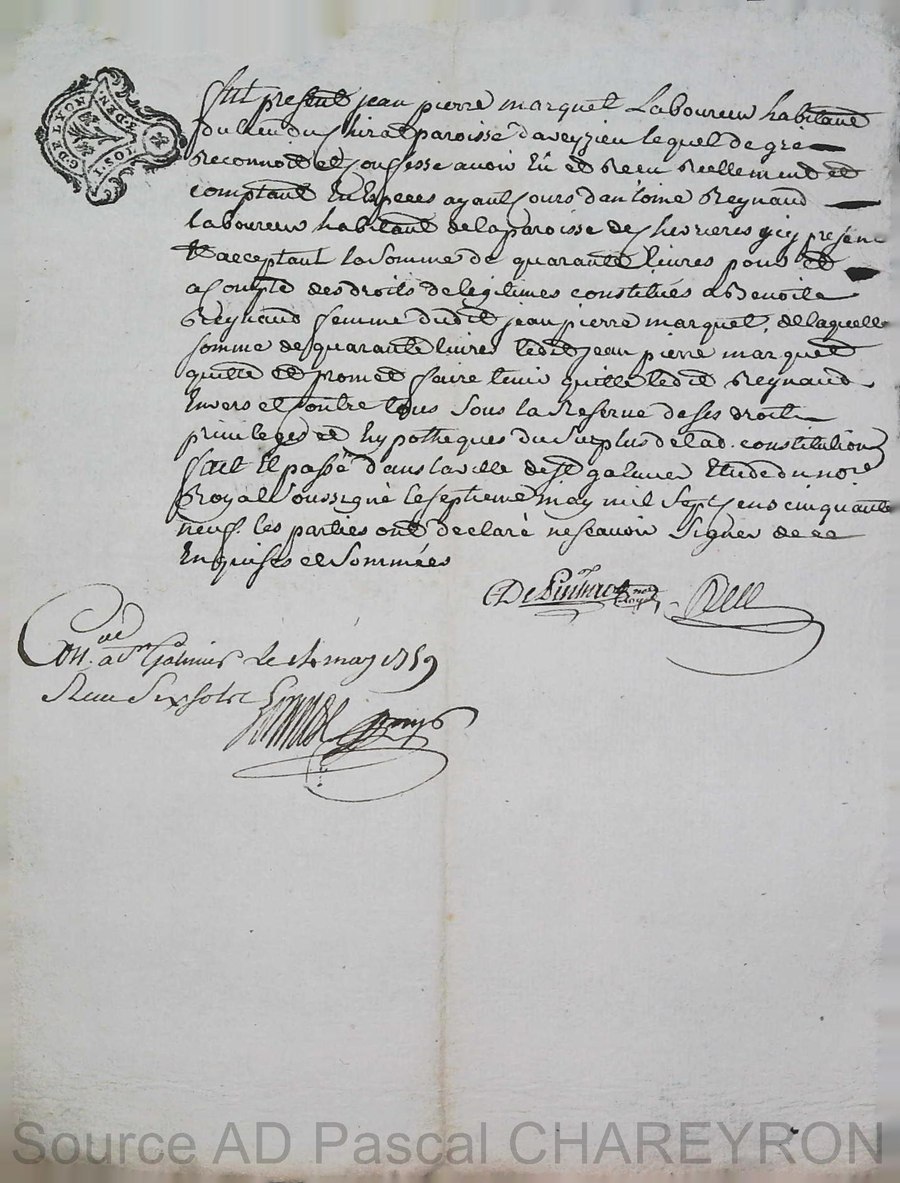 G. DE LYON
1. SOL. 4. DEN.
fut present jean pierre marquet Laboureur habitant
du lieu du Chirat paroisse d'aveyzieu lequel de gré
reconnoit et confesse avoir Eu et Receu Reellement et
comptant En Especes ayant Cours d'antoine Reynaud
laboureur habitant de la paroisse de Chevrieres icy present
Et acceptant la somme de quarante livres pour et
a Compte des droits de legitimes constitués a Benoite
Reynaud femme dudit jean pierre marquet, de laquelle
somme de quarante livres ledit jean pierre marquet
quitte et promet faire tenir quitte ledit Reynaud
Envers et Contre tous Sous la Reserve de ses droits
privileges et hypotheques du Surplus de lad. constitution
fait Et passé dans la ville de St galmier Etude du nore
Royal Soussigné le septieme may mil Sept Cens cinquante
neuf. les parties ont declaré ne scavoir Signer de ce
Enquises et Sommées
Conlé a St Galmier le 14 may 1759
Receu Six sols
Source AD Pascal CHAREYRON